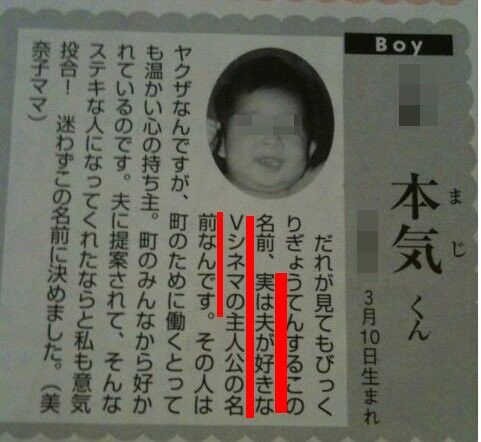 Boy
本気くん
まじ
3月10日生まれ
だれが見てもびっく
りぎょうてんするこの
名前、実は夫が好きな
Vシネマの主人公の名
前なんです。その人は
ヤクザなんですが、町のために働くとって
も温かい心の持ち主。町のみんなから好か
れているのです。夫に提案されて、そんな
ステキな人になってくれたならと私も意気
投合！ 迷わずこの名前に決めました。（美
奈子ママ）